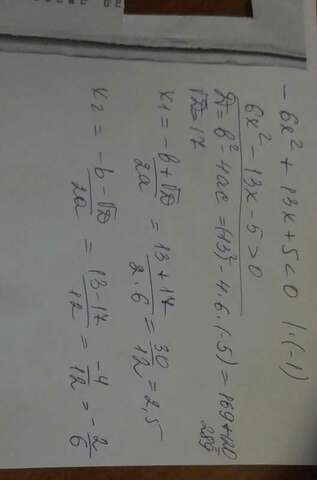 - 6x² + 13x + 5 < 0 | · (-1)
6x² - 13x - 5 > 0
D = b² - 4ac = (-13)² - 4 · 6 · (-5) = 169 + 120
289
√D = 17
x₁ = -b + √D / 2a = 13 + 17 / 2 · 6 = 30 / 12 = 2,5
x₂ = -b - √D / 2a = 13 - 17 / 12 = -4 / 12 = -2 / 6